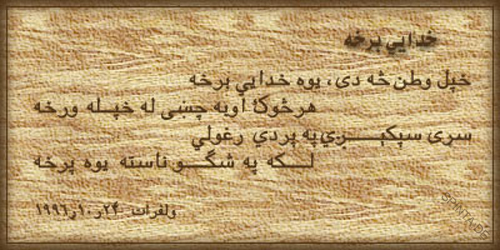 خدايي برخه
خپل وطن څه دی، يوه خدايي برخه
هر څوک اوبه چښي له خپله ورخه
سړی سپکېږي په پردي رغولي
لکه په شګو ناسته يوه پرخه
ولفرات ۲۴ر۱۰ر۱۹۹۶